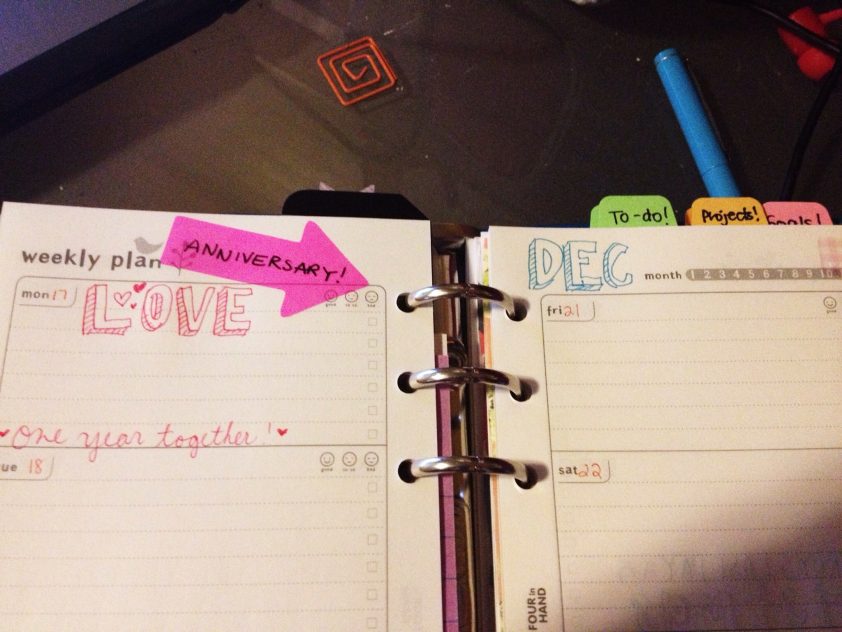 To-do!
Projects!
Goals!
ANNIVERSARY!
weekly plan
mon 17
LOVE
good so so bad
One year together!
ue 18
good so so bad
DEC
month 1 2 3 4 5 6 7 8 9 10
fri 21
good
sat 22
FOUR in
HAND